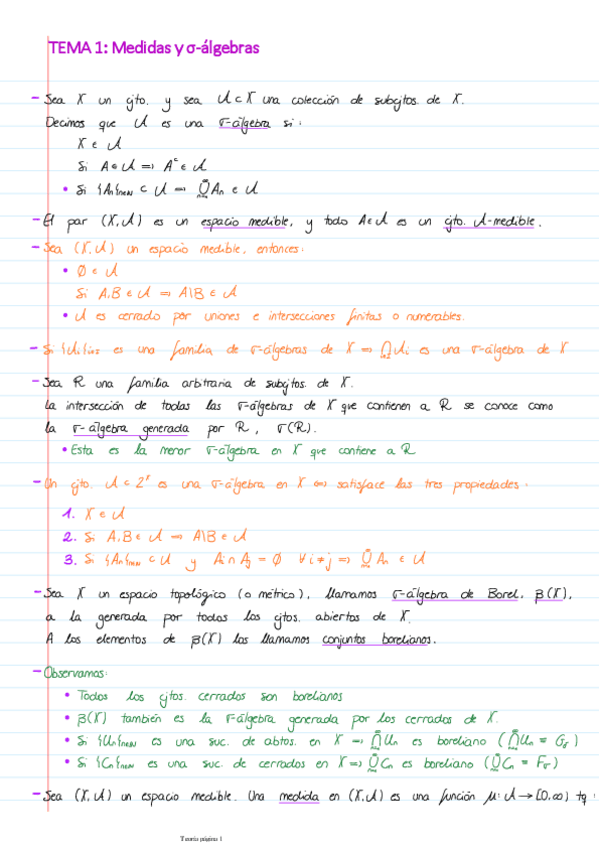 TEMA 1: Medidas y σ-álgebras
- Sea X un cjto. y sea 𝒰 ⊂ X una colección de subcjtos. de X.
Decimos que 𝒰 es una σ-álgebra si:
X ∈ 𝒰
Si A ∈ 𝒰 ⟹ Aᶜ ∈ 𝒰
• Si {An}n∈ℕ ⊂ 𝒰 ⟹ ⋃ₙ₌₁^∞ An ∈ 𝒰
- El par (X,𝒰) es un espacio medible, y todo A∈𝒰 es un cjto. 𝒰-medible.
- Sea (X,𝒰) un espacio medible, entonces:
• ∅ ∈ 𝒰
Si A,B ∈ 𝒰 ⟹ A\B ∈ 𝒰
• 𝒰 es cerrado por uniones e intersecciones finitas o numerables.
- Si {𝒰i}i∈I es una familia de σ-álgebras de X ⟹ ⋂i∈I 𝒰i es una σ-álgebra de X
- Sea R una familia arbitraria de subcjtos. de X.
La intersección de todas las σ-álgebras de X que contienen a R se conoce como
la σ-álgebra generada por R, σ(R).
• Esta es la menor σ-álgebra en X que contiene a R
- Un cjto. 𝒰 ⊂ 2ˣ es una σ-álgebra en X ⟺ satisface las tres propiedades:
1. X ∈ 𝒰
2. Si A,B ∈ 𝒰 ⟹ A\B ∈ 𝒰
3. Si {An}n∈ℕ ⊂ 𝒰 y Ai ∩ Aj = ∅ ∀ i ≠ j ⟹ ⋃ₙ₌₁^∞ An ∈ 𝒰
- Sea X un espacio topológico (o métrico), llamamos σ-álgebra de Borel, β(X),
a la generada por todos los cjtos. abiertos de X.
A los elementos de β(X) los llamamos conjuntos borelianos.
- Observamos:
• Todos los cjtos. cerrados son borelianos
• β(X) también es la σ-álgebra generada por los cerrados de X.
• Si {Un}n∈ℕ es una suc. de abtos. en X ⟹ ⋂ₙ₌₁^∞ Un es boreliano (⋂ₙ₌₁^∞ Un = Gδ)
• Si {Cn}n∈ℕ es una suc. de cerrados en X ⟹ ⋃ₙ₌₁^∞ Cn es boreliano (⋃ₙ₌₁^∞ Cn = Fσ)
- Sea (X,𝒰) un espacio medible. Una medida en (X,𝒰) es una función μ: 𝒰 → [0,∞) tq:
Teoría página 1